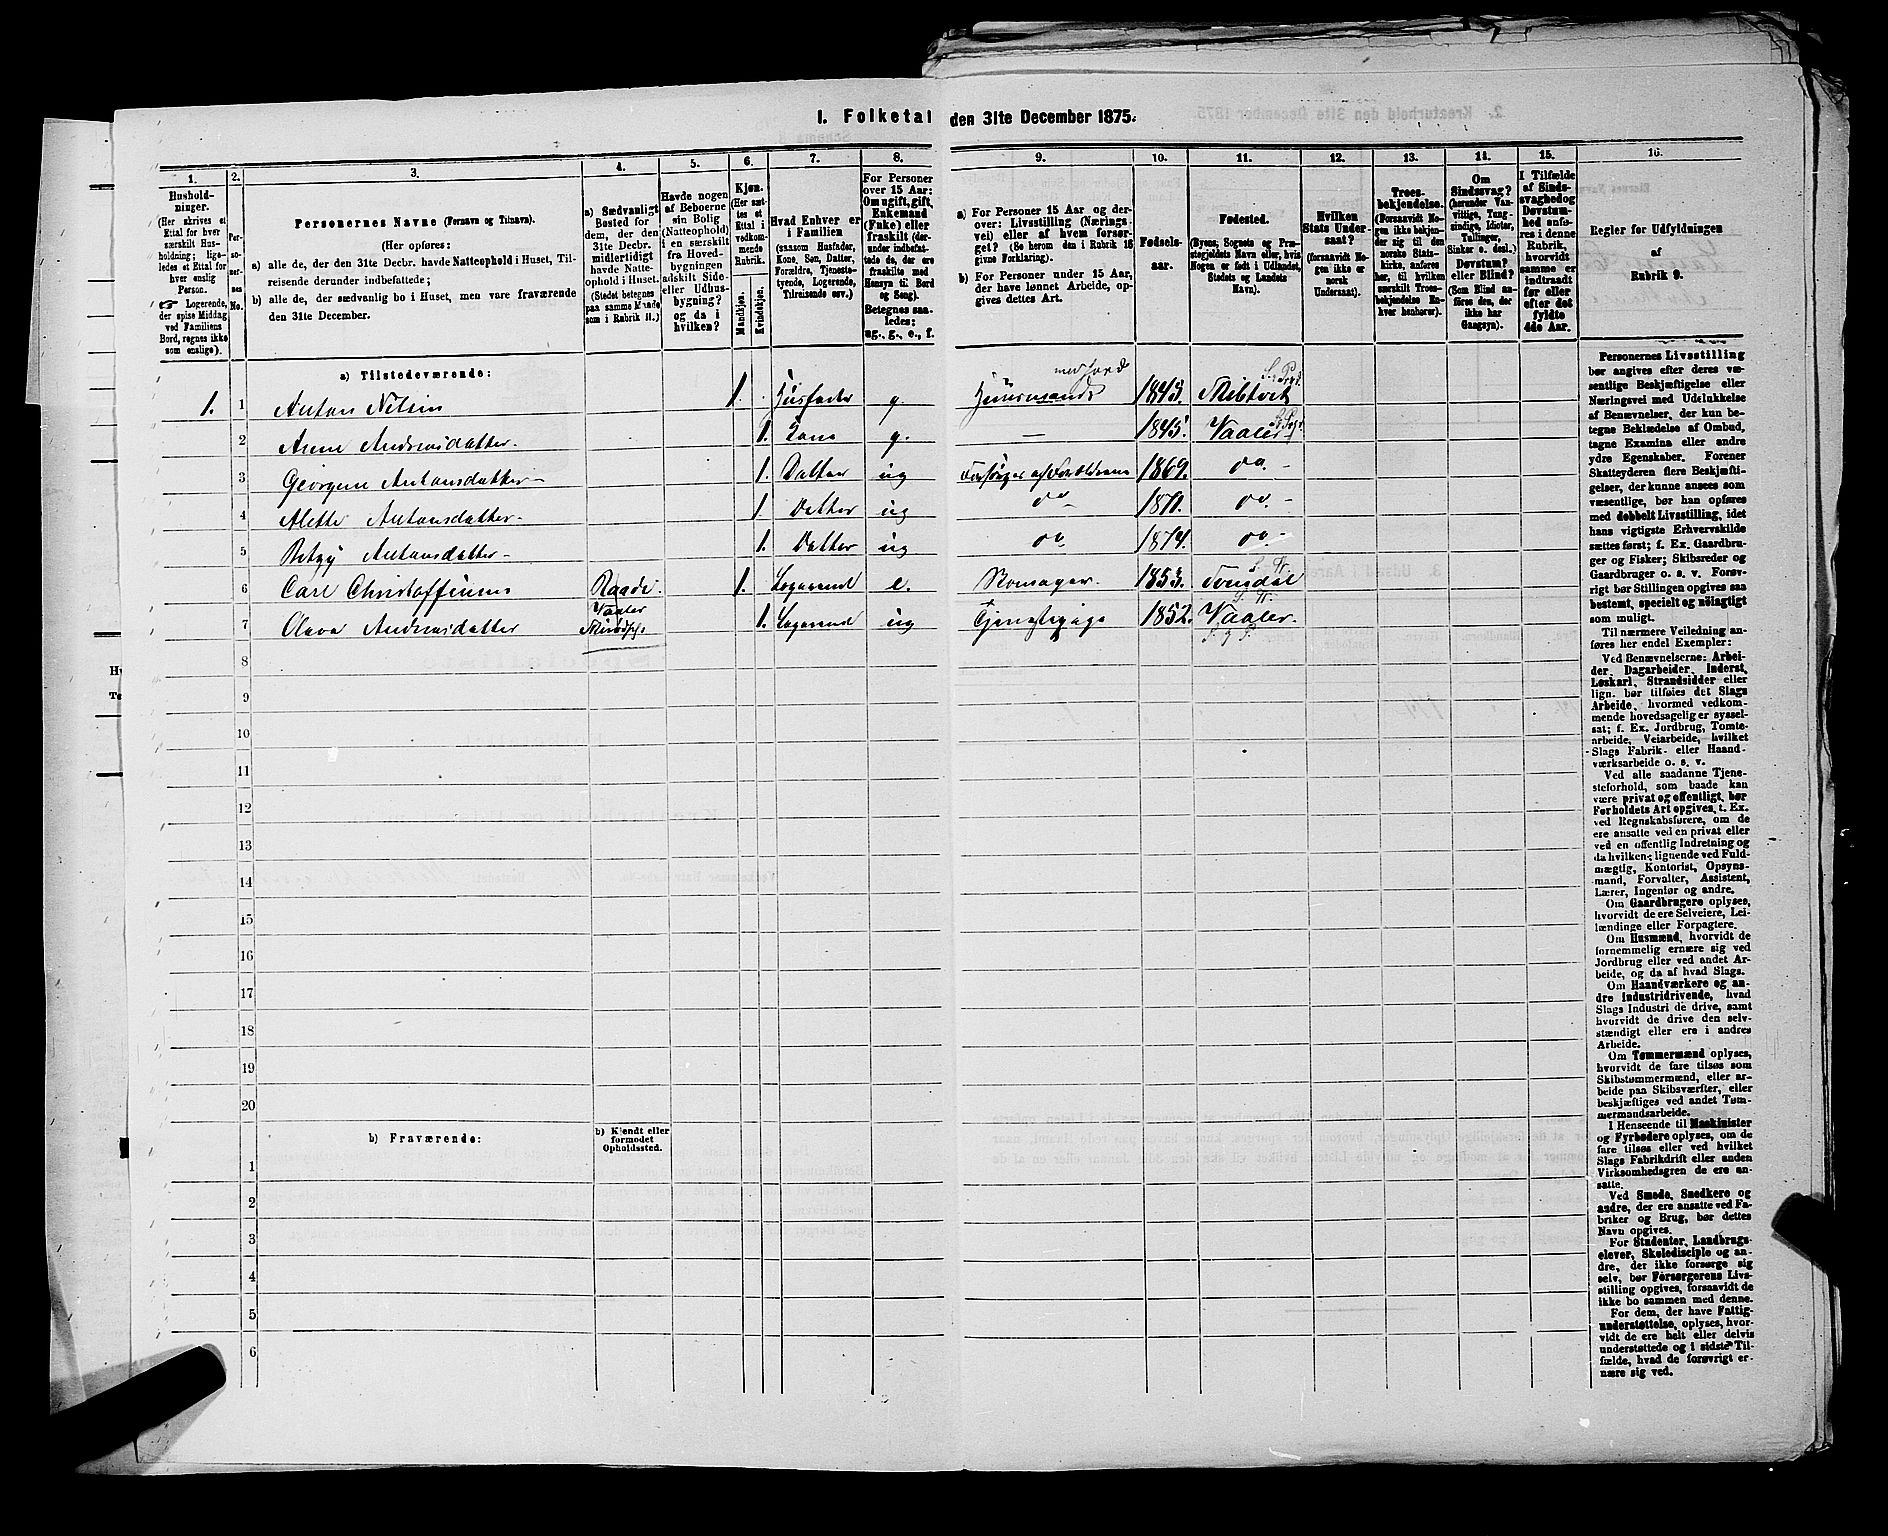 I. Folketal den 31te December 1875.
1.
2.
3.
4.
5.
6.
7.
8.
9.
10.
11.
12.
13.
14.
15.
16.
Hushold-
ninger.
(Her skrives et
Ettal for hver
særskilt Hus-
holdning; lige-
ledes et Ettal for
hver enslig
Person.
☞ Logerende,
der spise Middag
ved Familiens
Bord, regnes ikke
som enslige).
Per-
so-
ner-
nes
No.
Personernes Navne (Fornavn og Tilnavn).
(Her opføres:
a) alle de, der den 31te Decbr. havde Natteophold i Huset, Til-
reisende derunder indbefattede;
b) alle de, der sædvanlig bo i Huset, men vare fraværende
den 31te December.
a) Sædvanligt
Bosted for
dem, der den
31te Decbr.
midlertidigt
havde Natte-
ophold i Huset.
(Stedet betegnes
paa samme Maade
som i Rubrik 11.)
Havde nogen
af Beboerne
sin Bolig
(Natteophold)
i en særskilt
fra Hoved-
bygningen
adskilt Side-
eller Udhus-
bygning?
og da i
hvilken?
Kjøn.
(Her sæt-
tes et
Ettal i
vedkom-
mende
Rubrik.
Mandkjøn.
Kvindekjøn.
Hvad Enhver er
i Familien
(saasom Husfader,
Kone, Søn, Datter,
Forældre, Tjeneste-
tyende, Logerende,
Tilreisende osv.)
For Personer
over 15 Aar:
Om ugift, gift,
Enkemand
(Enke) eller
fraskilt (der-
under indbefat-
tede de, der ere
fraskilte med
Hensyn til Bord
og Seng).
Betegnes saa-
ledes:
ug., g., e., f.
a) For Personer 15 Aar og der-
over: Livsstilling (Nærings-
vei) eller af hvem forsør-
get? (Se herom den i Rubrik 16
givne Forklaring).
b) For Personer under 15 Aar,
der have lønnet Arbeide, op-
gives dettes Art.
Fødsels-
aar.
Fødested.
(Byens, Sognets og Præ-
stegjeldets Navn eller, hvis
Nogen er født i Udlandet,
Stedets og Landets
Navn).
Hvilken
Stats Under-
saat?
(forsaavidt No-
gen ikke er
norsk
Undersaat).
Troes-
bekjendelse.
(Forsaavidt No-
gen ikke bekjen-
der sig til den
norske Stats-
kirke, anføres
her, til hvilken
særskilt Troes-
bekjendelse En-
hver henhører).
Om
Sindssvag?
(herunder Van-
vittige, Tung-
sindige, Idioter,
Tullinger,
Sinker o. desl.)
Døvstum?
eller Blind?
(Som Blind an-
føres den, der
ikke har
Gangsyn).
I Tilfælde
af Sinds-
svaghed og
Døvstum-
hed anfø-
res i denne
Rubrik,
hvorvidt
samme er
indtraadt
før eller
efter det
fyldte
4de Aar.
Regler for Udfyldningen
af
Rubrik 9.
a) Tilstedeværende:
1. 1 Anton Nilsen 1. Husfader g. Huusmand med Jord 1843.
2 Anne Andreasdatter. 1. Kone g. — 1845. Vaaler
3 Georgine Antonsdatter 1. Datter ug Forsørges af Forældrene 1869. do. -
4 Alette Antonsdatter. 1. Datter ug do 1871. do. -
5 Antonsdatter 1. Datter ug do 1874. do. -
6 Carl Christoffersen Raade. 1. Logerend e. 1853.
7 Olava Andreasdatter Vaaler 1. Logerend ug Tjenestepige 1852. Vaaler.
8
9
10
11
12
13
14
15
16
17
18
19
20
b) Fraværende:
b) Kjendt eller
formodet
Opholdssted.
1
2
3
4
5
6
Personernes Livsstilling
bør angives efter deres væ-
sentlige Beskjæftigelse eller
Næringsvei med Udelukkelse
af Benævnelser, der kun be-
tegne Beklædelse af Ombud,
tagne Examina eller andre
ydre Egenskaber. Forener
Skatteyderen flere Beskjæfti-
gelser, der kunne ansees som
væsentlige, bør han opføres
med dobbelt Livsstilling, idet
hans vigtigste Erhvervskilde
sættes først; f. Ex. Gaardbru-
ger og Fisker; Skibsreder og
Gaardbruger o. s. v. Forøv-
rigt bør Stillingen opgives saa
bestemt, specielt og nøiagtigt
som muligt.
Til nærmere Veiledning an-
føres her endel Exempler:
Ved Benævnelserne: Arbei-
der, Dagarbeider, Inderst,
Løskarl, Strandsidder eller
lign. bør tilføies det Slags
Arbeide, hvormed vedkom-
mende hovedsagelig er syssel-
sat; f. Ex. Jordbrug, Tomte-
arbeide, Veiarbeide, hvilket
Slags Fabrik- eller Haand-
værksarbeide o. s. v.
Ved alle saadanne Tjene-
steforhold, som baade kan
være privat og offentligt, bør
Forholdets Art opgives, t. Ex.
ved Regnskabsførere, om de
ere ansatte ved en privat eller
ved en offentlig Indretning og
da hvilken; lignende ved Fuld-
mægtig, Kontorist, Opsyns-
mand, Forvalter, Assistent,
Lærer, Ingeniør og andre.
Om Gaardbrugere oplyses,
hvorvidt de ere Selveiere, Lei-
lændinge eller Forpagtere.
Om Husmænd, hvorvidt de
fornemmelig ernære sig ved
Jordbrug eller ved andet Ar-
beide, og da af hvad Slags.
Om Haandværkere og an-
dre Industridrivende, hvad
Slags Industri de drive, samt
hvorvidt de drive den selv-
stændigt eller ere i andres
Arbeide.
Om Tømmermænd oplyses,
hvorvidt de fare tilsøs som
Skibstømmermænd, eller ar-
beide paa Skibsværfter, eller
beskjæftiges ved andet Tøm-
mermandsarbeide.
I Henseende til Maskinister
og Fyrbødere oplyses, om de
fare tilsøs eller ved hvilket
Slags Fabrikdrift eller anden
Virksomhedsgren de ere an-
satte.
Ved Smede, Snedkere og
andre, der ere ansatte ved Fa-
briker og Brug, bør dettes
Navn opgives.
For Studenter, Landbrugs-
elever, Skoledisciple og an-
dre, der ikke forsørge sig
selv, bør Forsørgerens Livs-
stilling opgives, forsaavidt de
ikke bo sammen med denne.
For dem, der have Fattig-
understøttelse, oplyses, hvor-
vidt de ere helt eller delvis
understøttede og i sidste Til-
fælde, hvad de forøvrigt er-
nære sig ved.